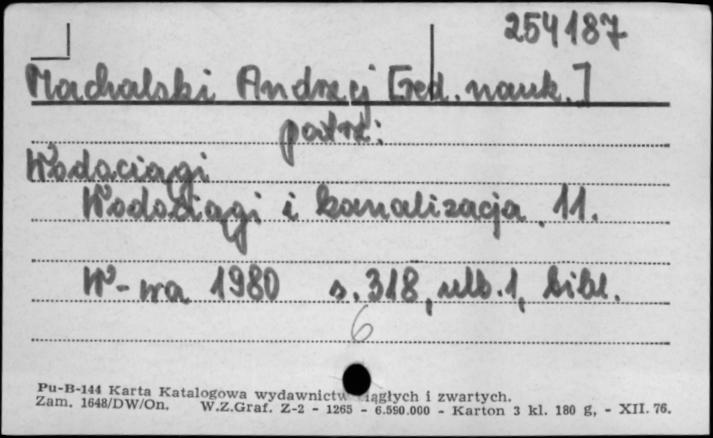 254187
Machalski Andrzej [red. nauk.]
patrz:
Wodociągi
Wodociągi i kanalizacja 11.
W-wa 1980 s. 318, nlb. 1, bibl.
6
Pu-B-144 Karta Katalogowa wydawnictw ciągłych i zwartych.
Zam. 1648/DW/On. W.Z.Graf. Z-2 - 1265 - 6.590.000 - Karton 3 kl. 180 g, - XII. 76.